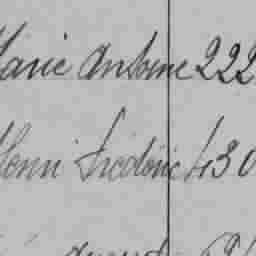 Marie Antoine 222
Henri Frédéric 430